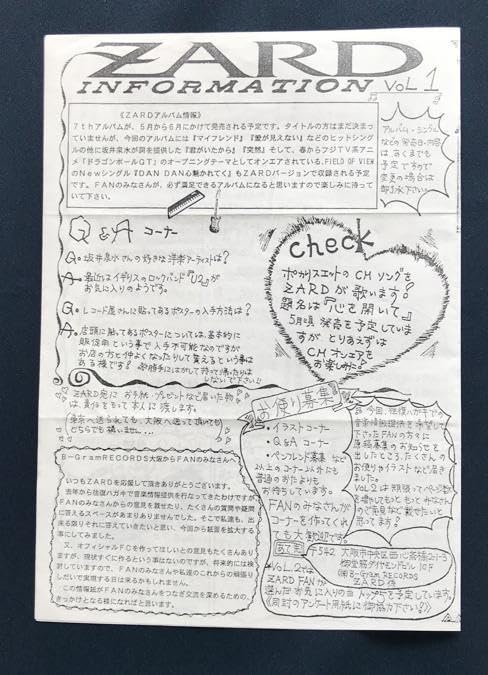 ZARD
INFORMATION VOL 1
《ZARDアルバム情報》
7thアルバムが、5月から6月にかけて発売される予定です。タイトルの方はまだ決まっ
ていませんが、今回のアルバムには『マイフレンド』『愛が見えない』などのヒットシング
ルの他に坂井泉水が詞を提供した『君がいたから』『突然』そして、春からフジTV系アニ
メ『ドラゴンボールGT』のオープニングテーマとしてオンエアされている、FIELD OF VIEW
のNewシングル『DAN DAN心魅かれてく』もZARDバージョンで収録される予定
です。FANのみなさんが、必ず満足できるアルバムになると思いますので楽しみに待って
いて下さい。
アルバム・シングル
などの発売日・内容
は、あくまでも
予定ですので
変更の場合は
御了承下さい。
Q&A コーナー
Q。坂井泉水さんの好きな洋楽アーティストは?
A。最近はイギリスのロックバンド『U2』が
お気に入りのようです。
Q。レコード屋さんに貼ってあるポスターの入手方法は?
A。店頭に貼ってあるポスターについては、基本的に
販促用という事で入手不可能なのですが
お店の方と仲よくなったりして貰えるという事は
ある様です?勝手にはがして持って帰ったりは
しないで下さい!!
check
ポカリスエットのCMソングを
ZARDが歌います?
題名は『心を開いて』
5月頃発売を予定していま
すが とりあえずは
CMオンエアを
お楽しみに!
ZARD宛にお手紙・プレゼントなど届いた物
は、責任をもって本人に渡します。
東京へ送られても、大阪へ送って頂いても
どちらでも構いません…
B-GramRECORDS大阪からFANのみなさんへ
いつもZARDを応援して頂きありがとうございます。
去年から往復ハガキで音楽情報提供を行なってきたわけですが
FANのみなさんからの意見を載せたり、たくさんの質問や疑問
に答えるスペースがあまりありませんでした。そこで私達も、出
来る限りそれに答えていきたいと思い、今回から紙面を拡大する
事にしてみました。
又、オフィシャルFCを作ってほしいとの意見もたくさんあり
ますが、現状すぐに作るという事はないのですが、将来的には検
討していますので、FANのみなさんや私達のこれからの頑張り
しだいで実現する日は来るかもしれません。
この情報紙がFANのみなさんをつなぎ交流を深めるための、
きっかけとなる様になればと思います。
お便り募集
・イラストコーナー
・Q&Aコーナー
・ペンフレンド募集 など
以上のコーナー以外にも
普通のおたよりも
お待ちしています。
FANのみなさんが
コーナーを作ってくれ
ても大歓迎です
今回、往復ハガキでの
音楽情報提供を希望して
下さったFANの方々に
原稿募集のお知らせを
出したところ、たくさんの
お便りやイラストなど届きま
した。
VOL.2は頑張ってページ数
を増やしてもっともっとみなさん
のご意見など載せたいと
思ってます?
あて先 〒542 大阪市中央区西心斎橋2-1-3
御堂筋ダイヤモンドビル10F
㈱B-Gram RECORDS
ZARD係
VOL.2では
ZARD FANが
選んだお気に入りの曲トップ5を予定しています。
《同封のアンケート用紙に御協力下さい?》